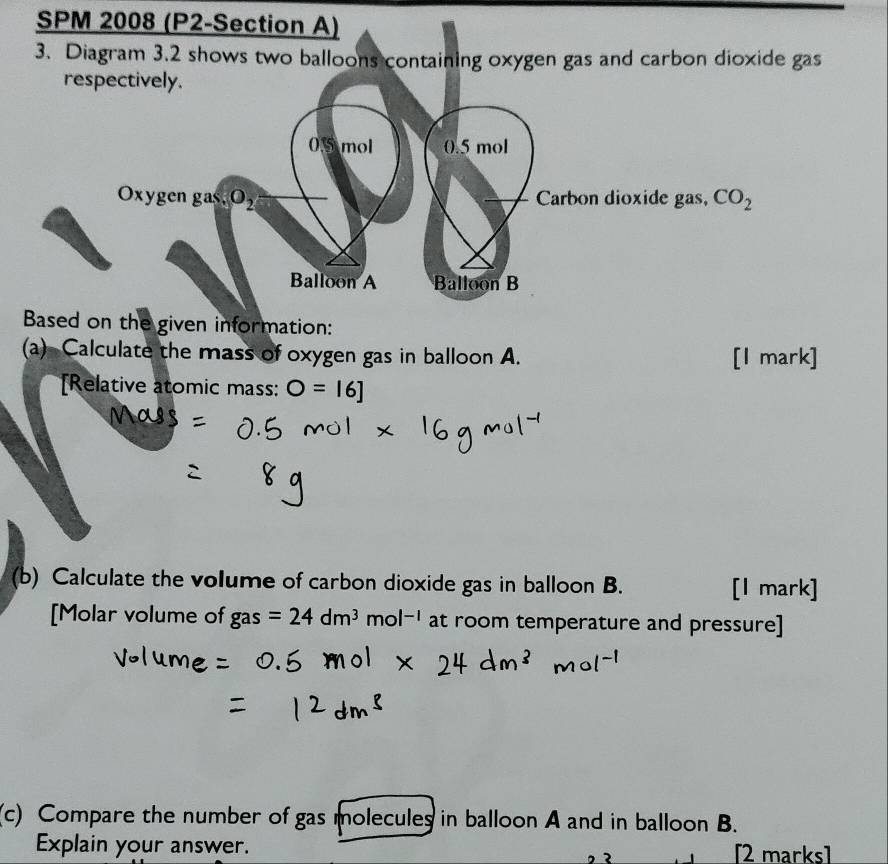 SPM 2008 (P2-Section A)
3. Diagram 3.2 shows two balloons containing oxygen gas and carbon dioxide gas
respectively.
0.5 mol 0.5 mol
Oxygen gas, O₂ Carbon dioxide gas, CO₂
Balloon A Balloon B
Based on the given information:
(a) Calculate the mass of oxygen gas in balloon A. [1 mark]
[Relative atomic mass: O = 16]
Mass = 0.5 mol × 16 g mol⁻¹
= 8 g
(b) Calculate the volume of carbon dioxide gas in balloon B. [1 mark]
[Molar volume of gas = 24 dm³ mol⁻¹ at room temperature and pressure]
Volume = 0.5 mol × 24 dm³ mol⁻¹
= 12 dm³
(c) Compare the number of gas molecules in balloon A and in balloon B.
Explain your answer. [2 marks]